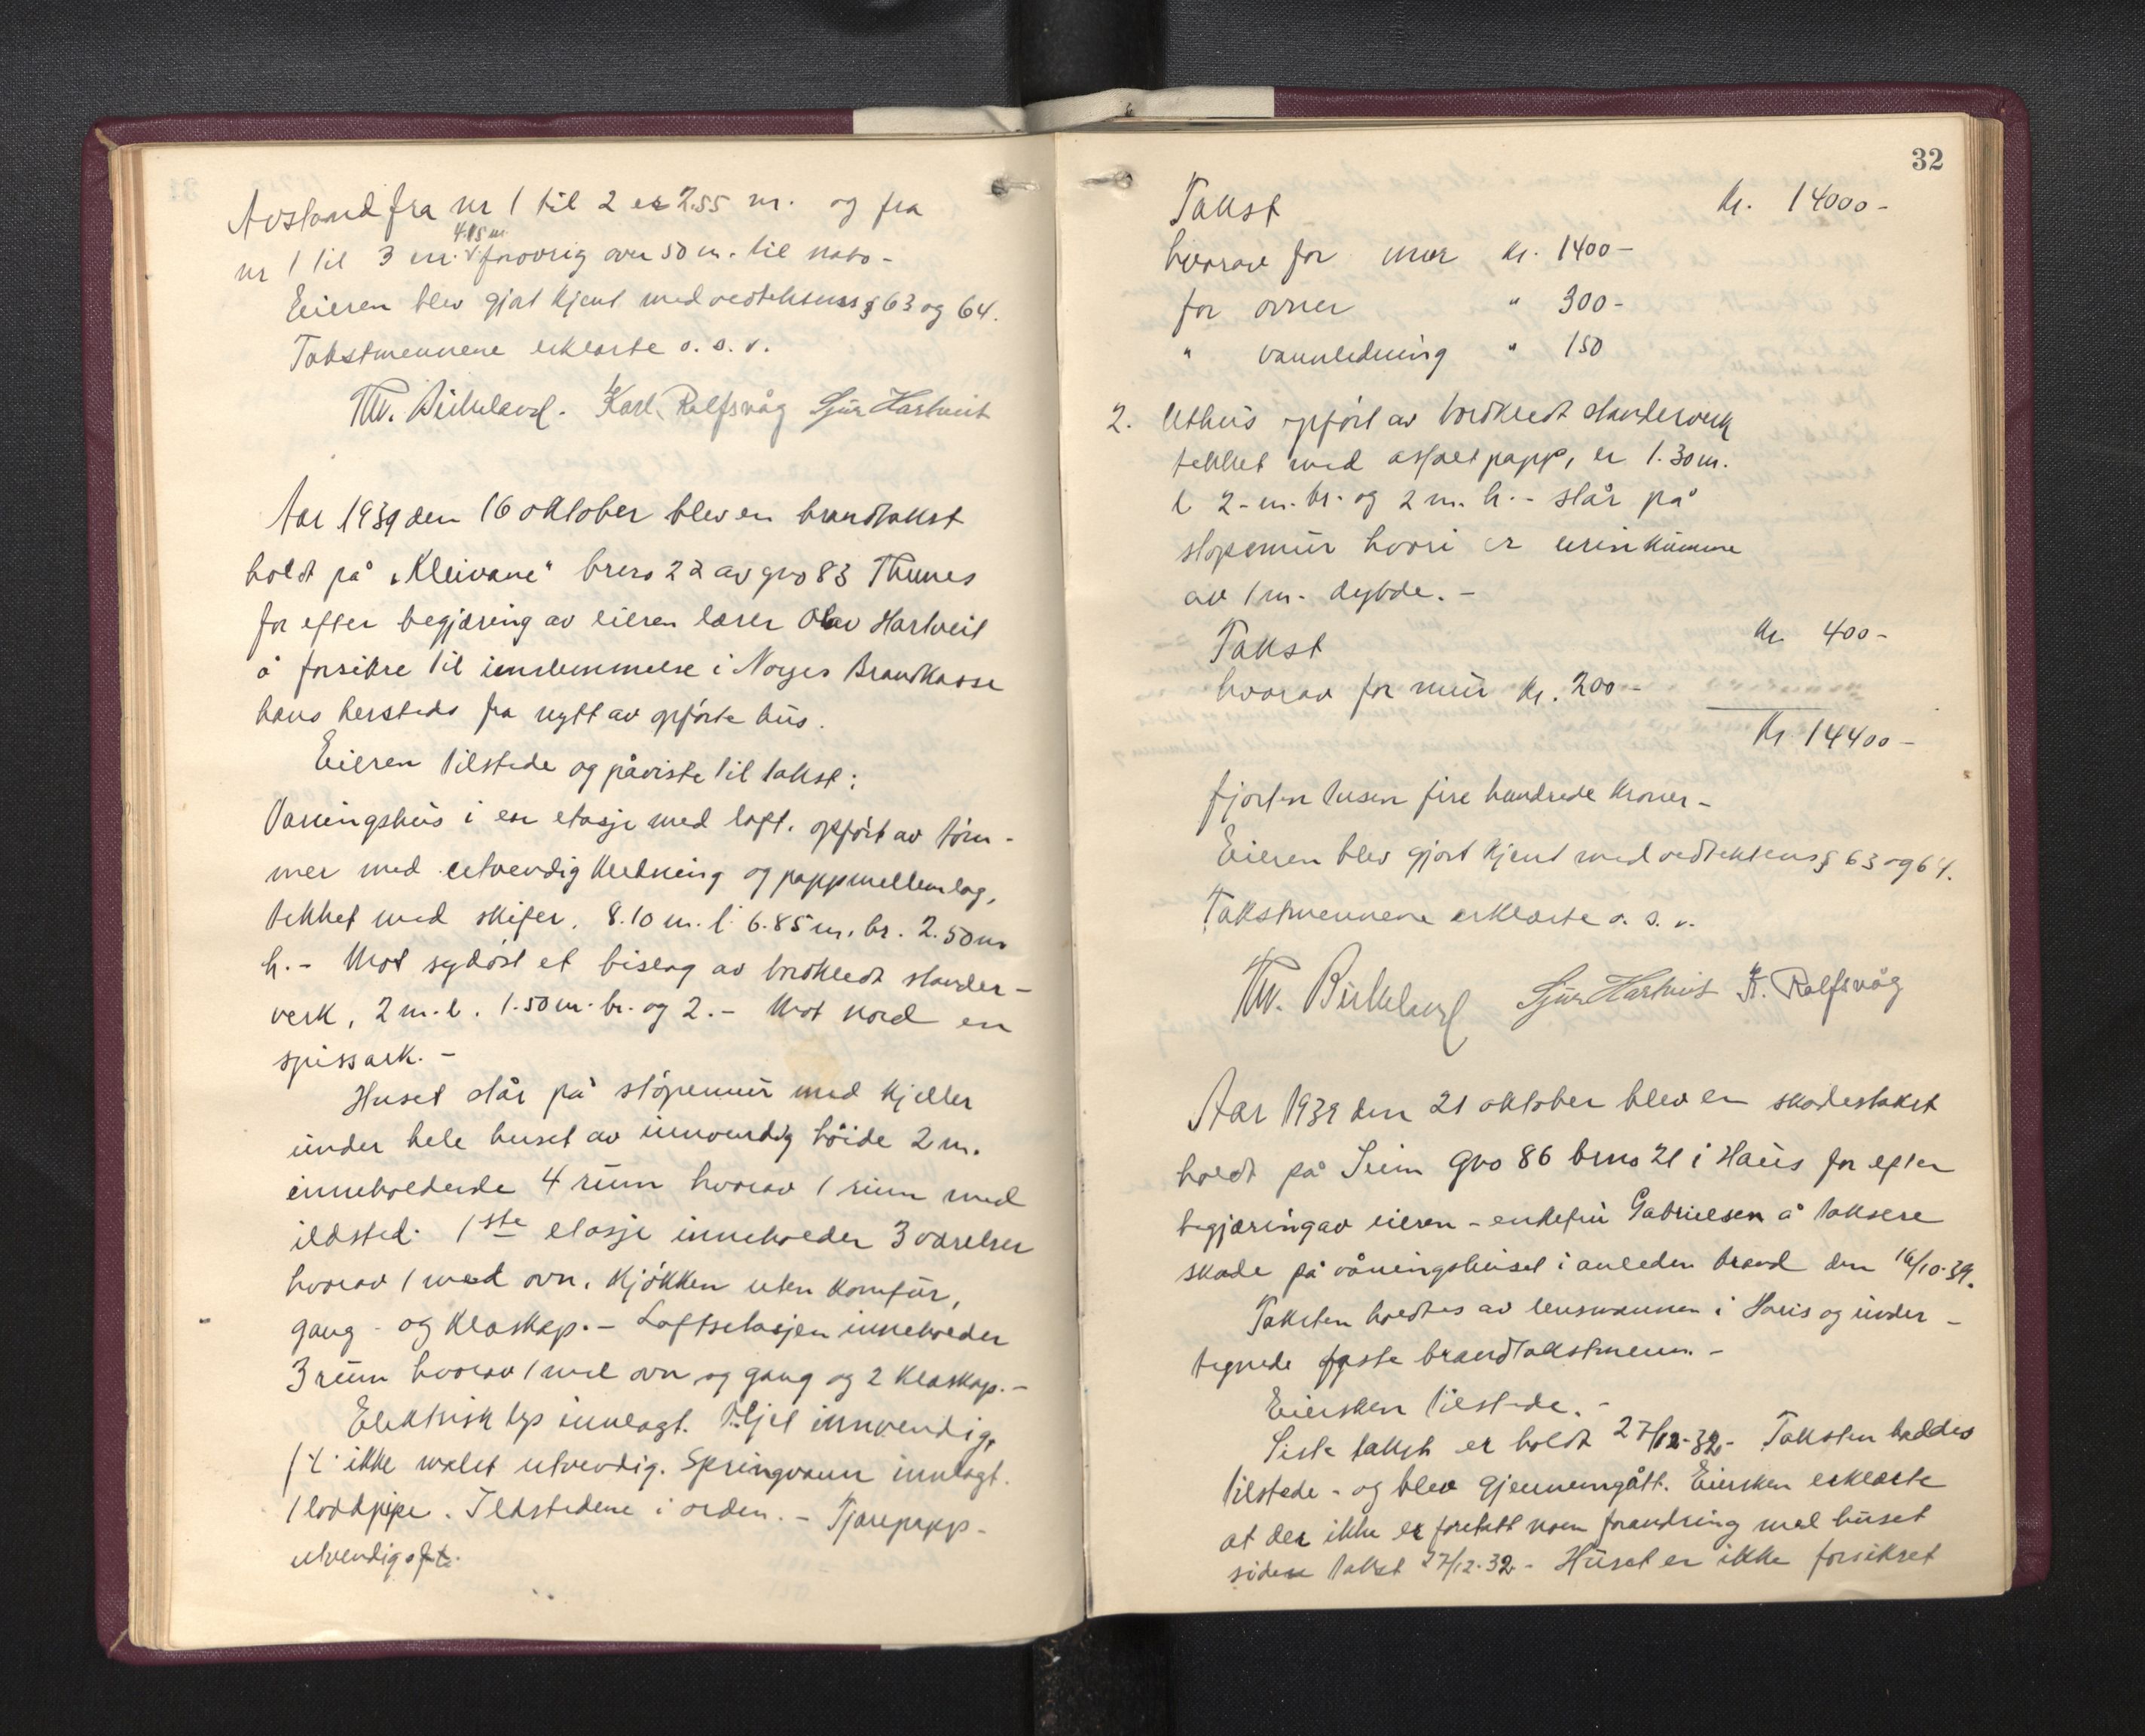 Avstand fra nr 1 til 2 er 2.55 m. og fra
4.15 m
nr 1 til 3 er. forøvrig over 50 m. til nabo -
Eieren blev gjort kjent med vedtektens § 63 og 64.
Takstmennene erklærte o. s. v.
Th. Birkeland. Karl. Rolfsvåg Sjur Hartveit
Aar 1939 den 16 oktober blev en brandtakst
holdt på „Kleivane" brno 22 av gno 83 Thunes
for efter begjæring av eieren lærer Olav Hartveit
å forsikre til innlemmelse i Norges Brandkasse
hans hersteds fra nytt av opførte hus.
Eieren tilstede og påviste til takst:
Vaaningshus i en etasje med loft. opført av tøm-
mer med utvendig kledning og pappmellemlag,
tekket med skifer. 8.10 m. l. 6.85 m. br. 2.50 m
h. - Mot sydøst et bislag av bordkledt stander-
verk, 2 m. l. 1.50 m. br. og 2. - Mot nord en
spissark. -
Huset står på støpemur med kjeller
under hele huset av innvendig høide 2 m.
inneholdende 4 rum hvorav 1 rum med
ildsted. 1ste etasje inneholder 3 værelser
hvorav 1 med ovn, kjøkken uten komfur,
gang - og kleskap. - Loftsetasjen inneholder
3 rum hvorav 1 med ovn og gang og 2 kleskap. -
Elektrisk lys innlagt. innvendig,
ikke malt utvendig. Springvann innlagt.
1 loddpipe. Ildstedene i orden. - Tjærepapp-
utvendig
32
Takst kr. 14000 -
hvorav for mur kr. 1400 -
for ovner " 300 -
" vannledning " 150
2. Uthus opført av bordkledt standerverk
tekket med asfaltpapp, er 1.30 m.
l 2 - m. br. og 2 m. h. - står på
støpemur hvori er urinkumme
av 1 m. dybde. -
Takst kr 400 -
hvorav for mur kr. 200 -
kr. 14400 -
fjorten tusen fire hundrede kroner -
Eieren blev gjort kjent med vedtektens § 63 og 64.
Takstmennene erklærte o. s. v.
Th. Birkeland Sjur Hartveit K. Rolfsvåg
Aar 1939 den 21 oktober blev en skadestakst
holdt på Seim gno 86 brno 21 i Haus for efter
begjæring av eieren - enkefru Gabrielsen å taksere
skade på våningshuset i anleden brand den 16/10-39.
Taksten holdtes av lensmannen i Haus og under-
tegnede faste brandtakstmenn. -
Eiersken tilstede. -
Siste takst er holdt 27/12-32 - Taksten haddes
tilstede - og blev gjennemgått. Eiersken erklærte
at der ikke er foretatt noen forandring med huset
siden takst 27/12-32 - Huset er ikke forsikret